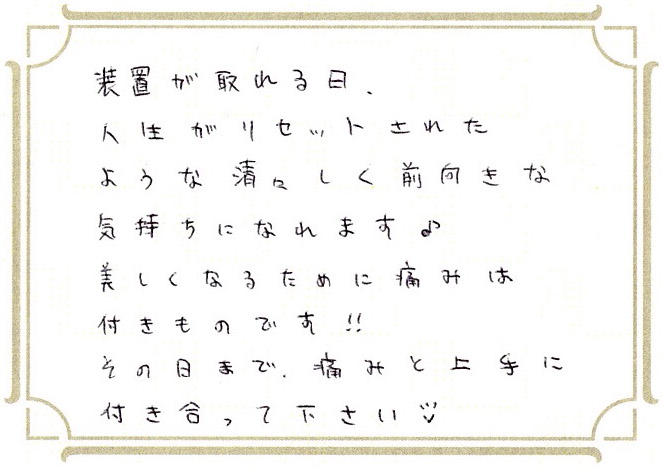 装置が取れる日、
人生がリセットされた
ような清々しく前向きな
気持ちになれます♪
美しくなるために痛みは
付きものです!!
その日まで、痛みと上手に
付き合って下さい